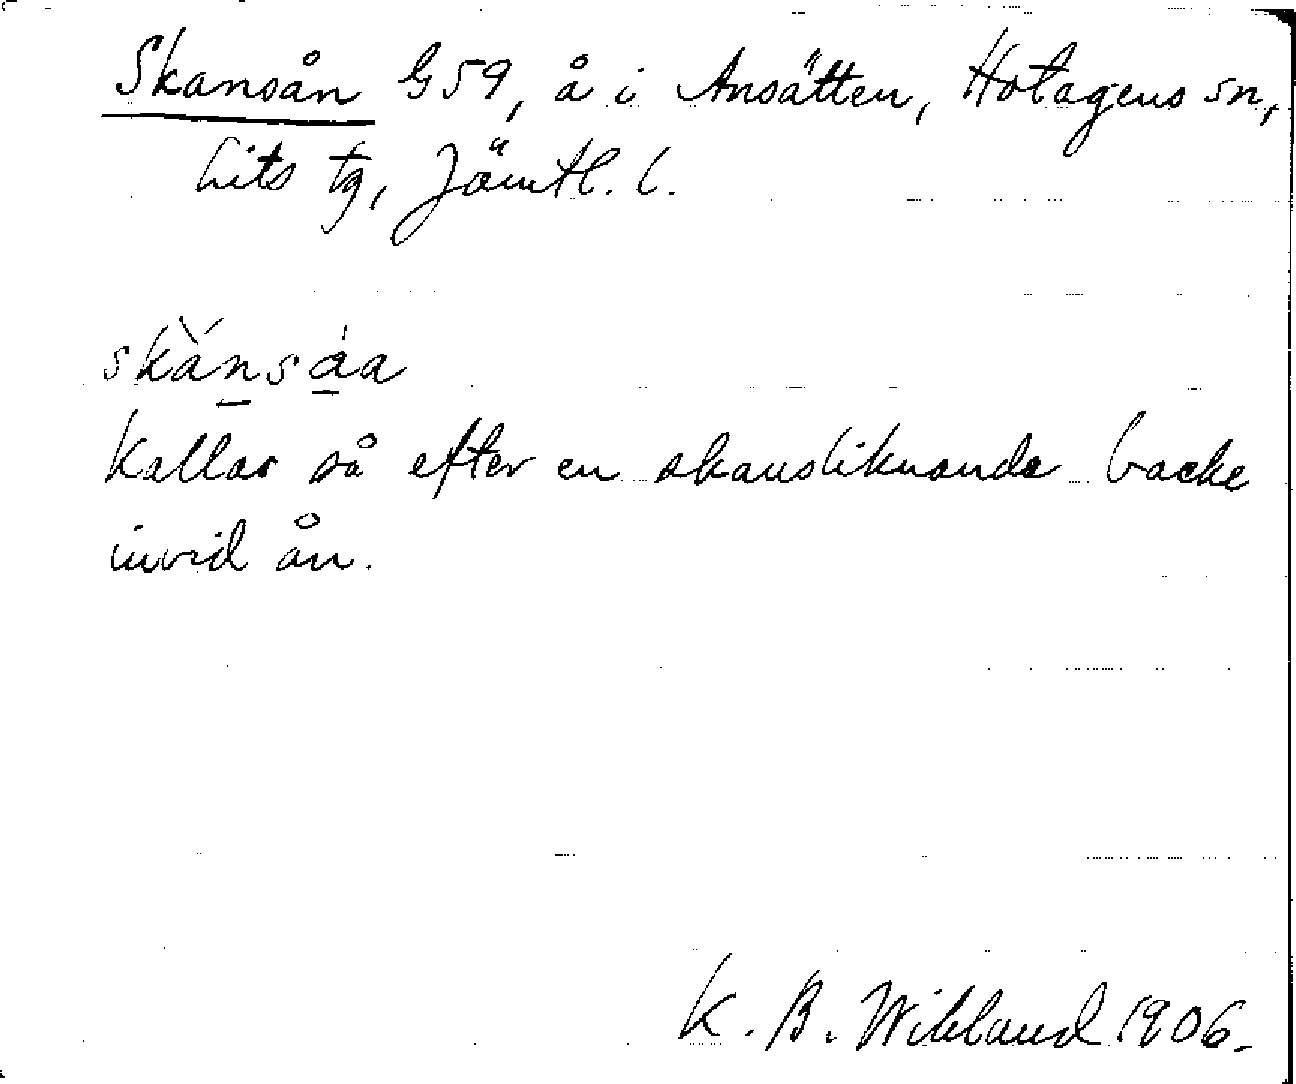 Skansån G59, å i Ansätten, Hotagens sn,
Lits tg, Jämtl. l.
skǎnsȧa
Kallas så efter en skansliknande backe
invid ån.
K. B. Wiklund 1906.